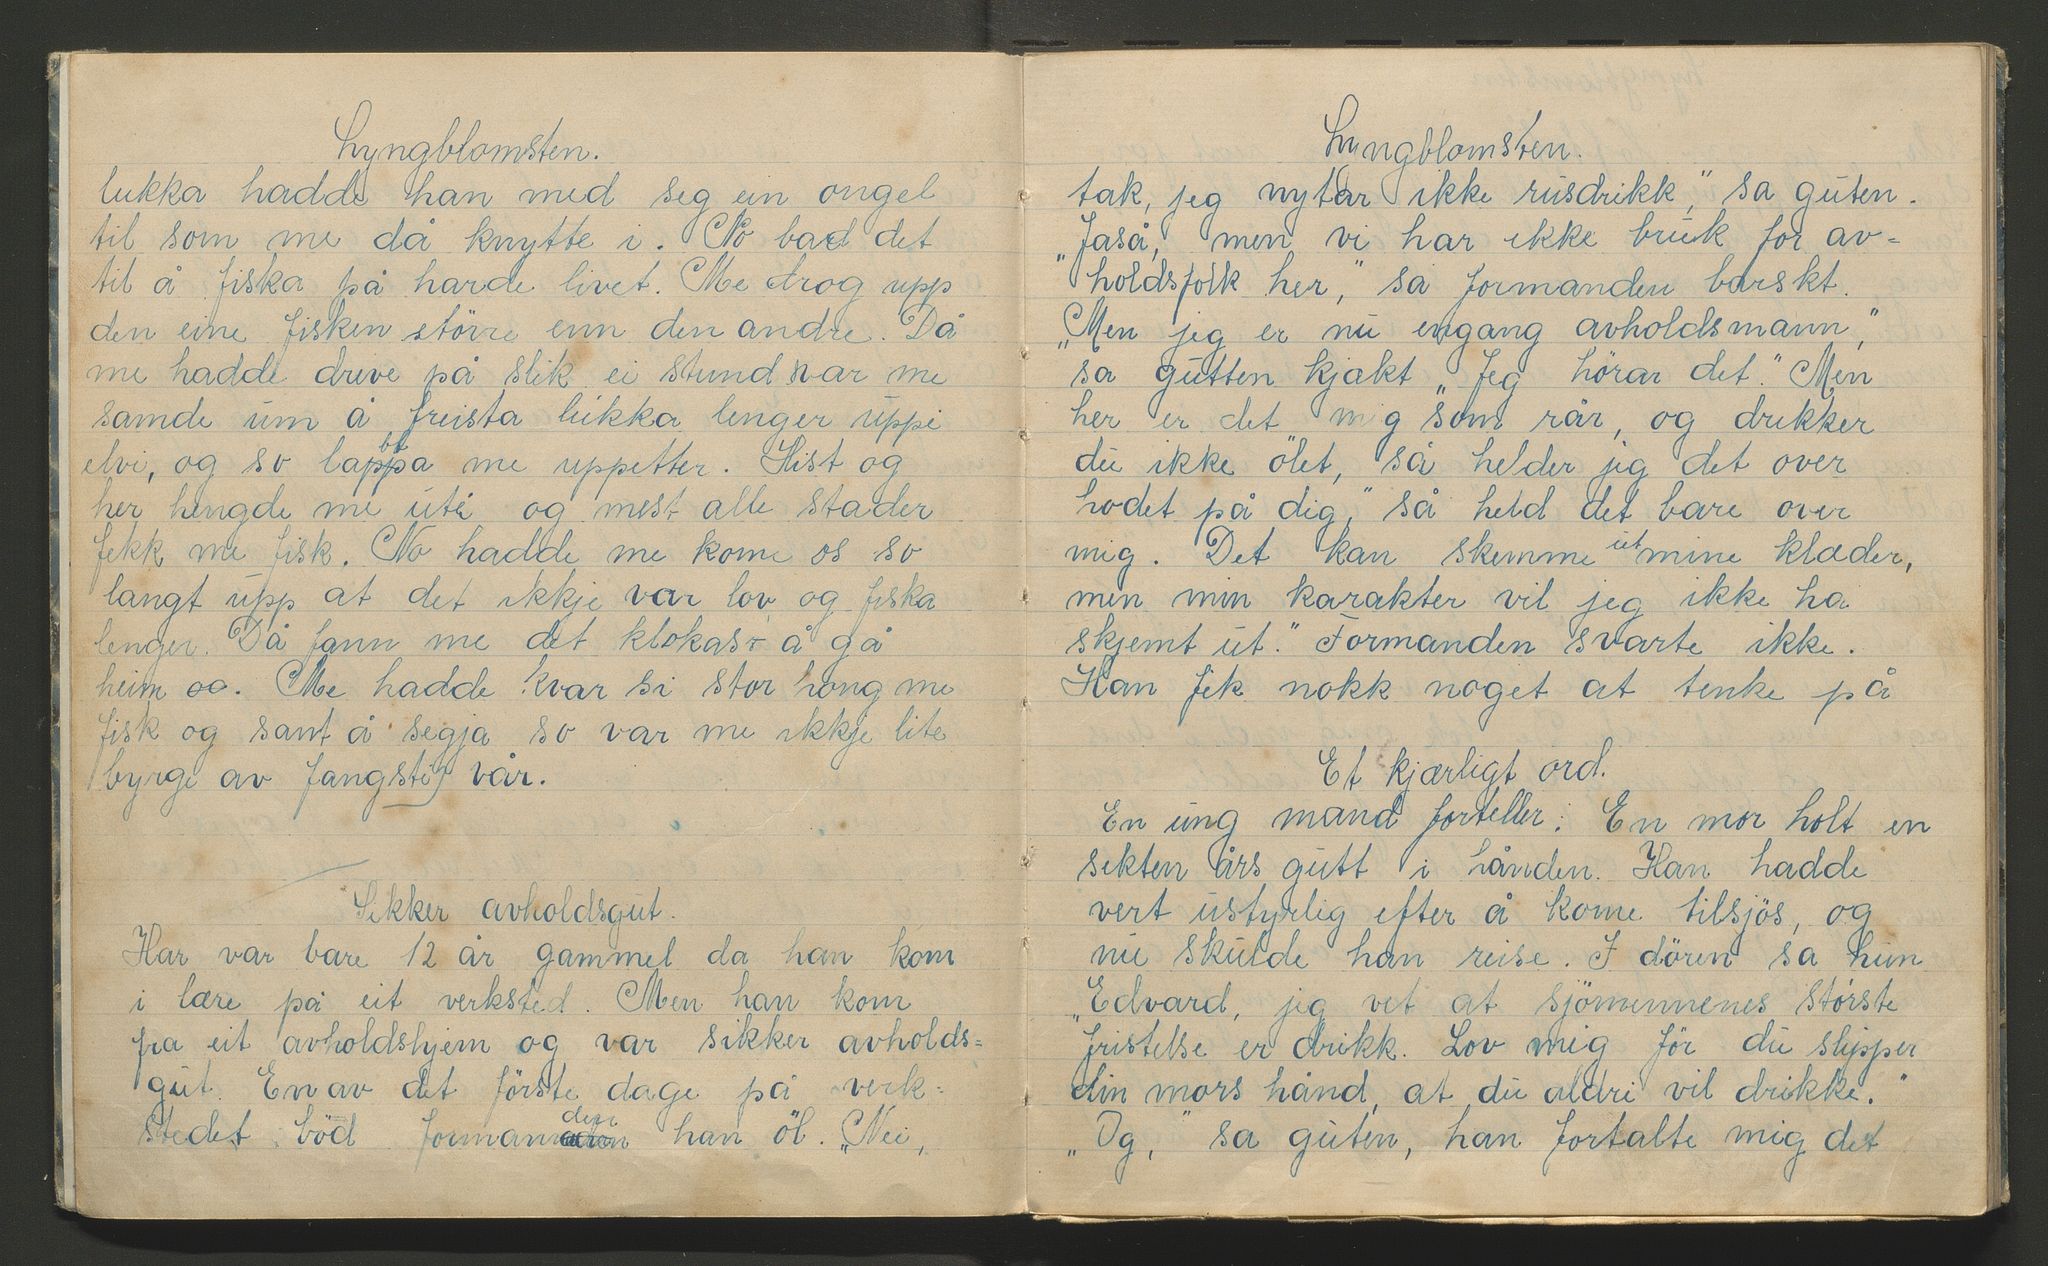 Lyngblomsten.
lukka hadde han med seg ein ongel
til som me då knytte i. No bad det
til å fiska på harde livet. Me drog upp
den eine fisken större enn den andre. Då
me hadde dreve på slik ei stund var me
samde um å freista lukka lenger uppi
elvi, og so labba me uppetter. Hist og
her hengde me uti og mest alle stader
fekk me fisk. No hadde me kome os so
langt upp at det ikkje var lov og fiska
lenger. Då fann me det klokast å gå
heim oo. Me hadde kvar si stor hong me
fisk og sant å segja so var me ikkje lite
byrge av fangsti vår.
Sikker avholdsgut.
Har var bare 12 år gammel da han kom
i lære på eit verksted. Men han kom
fra eit avholdshjem og var sikker avholds=
gut. En av det förste dage på verk=
stedet böd formannden han öl. „Nei,
Lyngblomsten.
tak, jeg nytar ikke rusdrikk," sa guten.
„Jaså, men vi har ikke bruk for av=
holdsfolk her," sa formanden barskt.
„Men jeg er nu engang avholdsmann,"
sa gutten kjækt „Jeg hörar det." Men
her er det mig som rår, og drikker
du ikke ölet, så helder jig det over
hodet på dig," så held det bare over
mig. Det kan skemme ut mine klæder,
men min karakter vil jeg ikke ha
skjemt ut." Formanden svarte ikke.
Han fek nokk noget at tenke på
Et kjærligt ord.
En ung mand forteller: En mor holt en
sekten års gutt i hånden. Han hadde
vert ustyrlig efter å kome tilsjös, og
nu skulde han reise. I dören sa hun
„Edvard, jeg vet at sjömennenes störste
fristelse er drikk. Lov mig för du slipper
din mors hånd, at du aldri vil drikke."
„Og," sa guten, han fortalte mig det